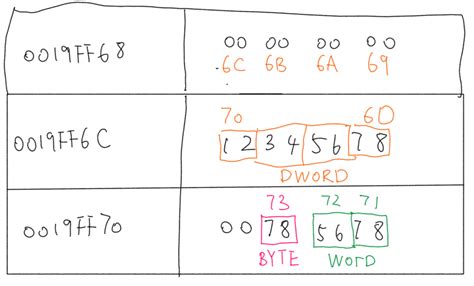 0019FF68 00 00 00 00
6C 6B 6A 69
70 6D
0019FF6C 12 34 56 78
DWORD
73 72 71
0019FF70 00 78 56 78
BYTE WORD